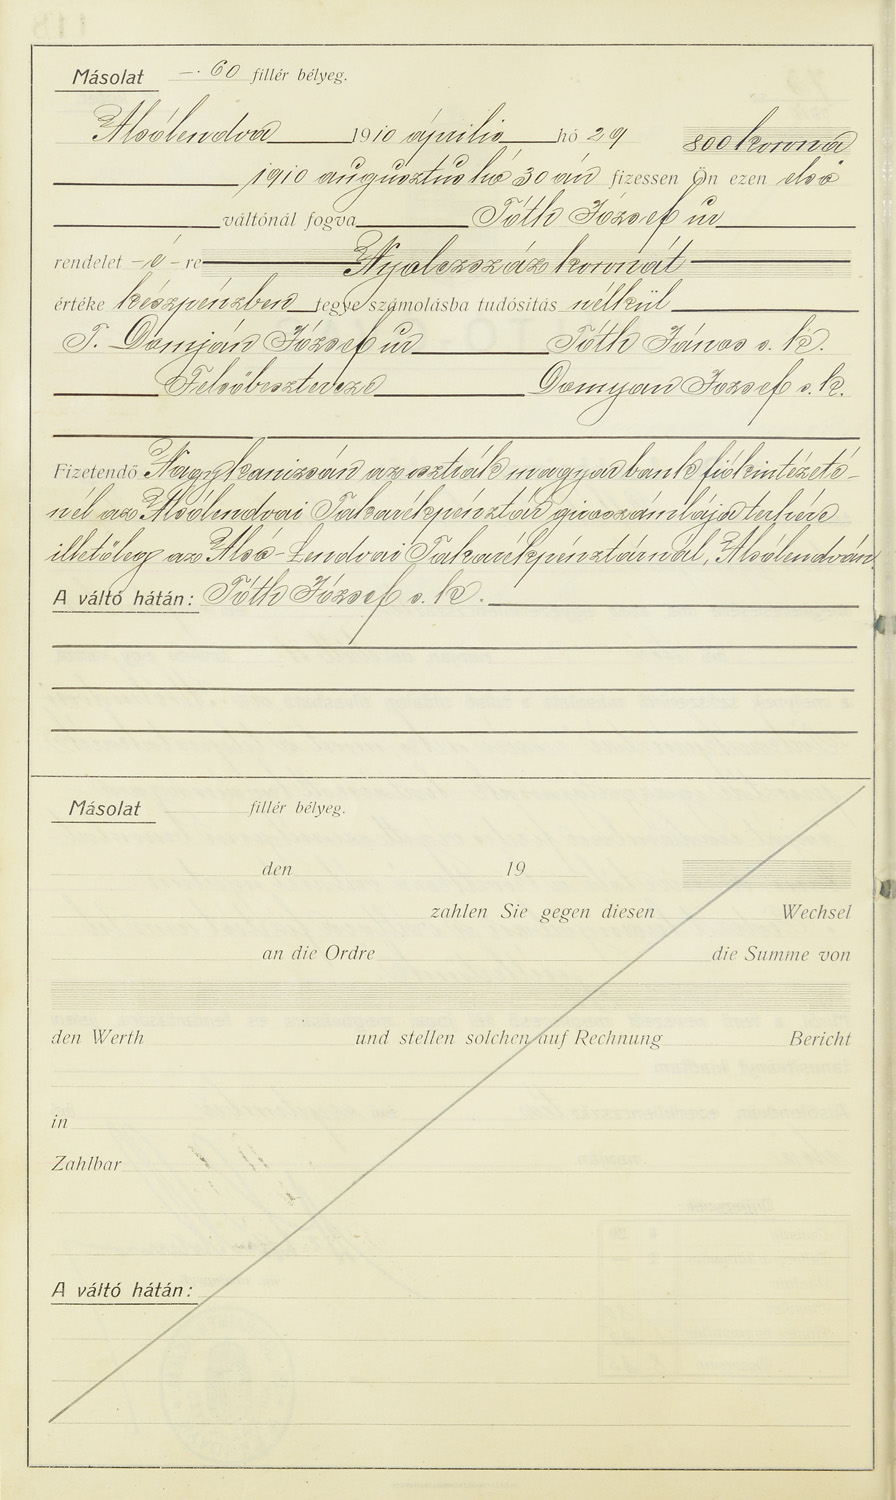 Másolat —· 60 fillér bélyeg.
Alsólendva 1910 április hó 29 800 korona
1910 augusztus hó 30 án fizessen Ön ezen első
váltónál fogva Tóth József úr
rendelet -é - re Nyolczszáz koronát
értéke készpénzben tegye számolásba tudósítás nélkül
T. Domján József úr Tóth János s. k.
Felsőbeszterecze Domyan József s. k.
Fizetendő Nagykanizsán az osztrák magyar bank fiókintézeté-
nél az Alsólendvai Takarékpénztár giroszámlája terhére
illetőleg az Alsó-Lendvai Takarékpénztárnál, Alsólendván
A váltó hátán: Tóth József s. k.
Másolat fillér bélyeg.
den 19
zahlen Sie gegen diesen Wechsel
an die Ordre die Summe von
den Werth und stellen solchen auf Rechnung Bericht
in
Zahlbar
A váltó hátán: